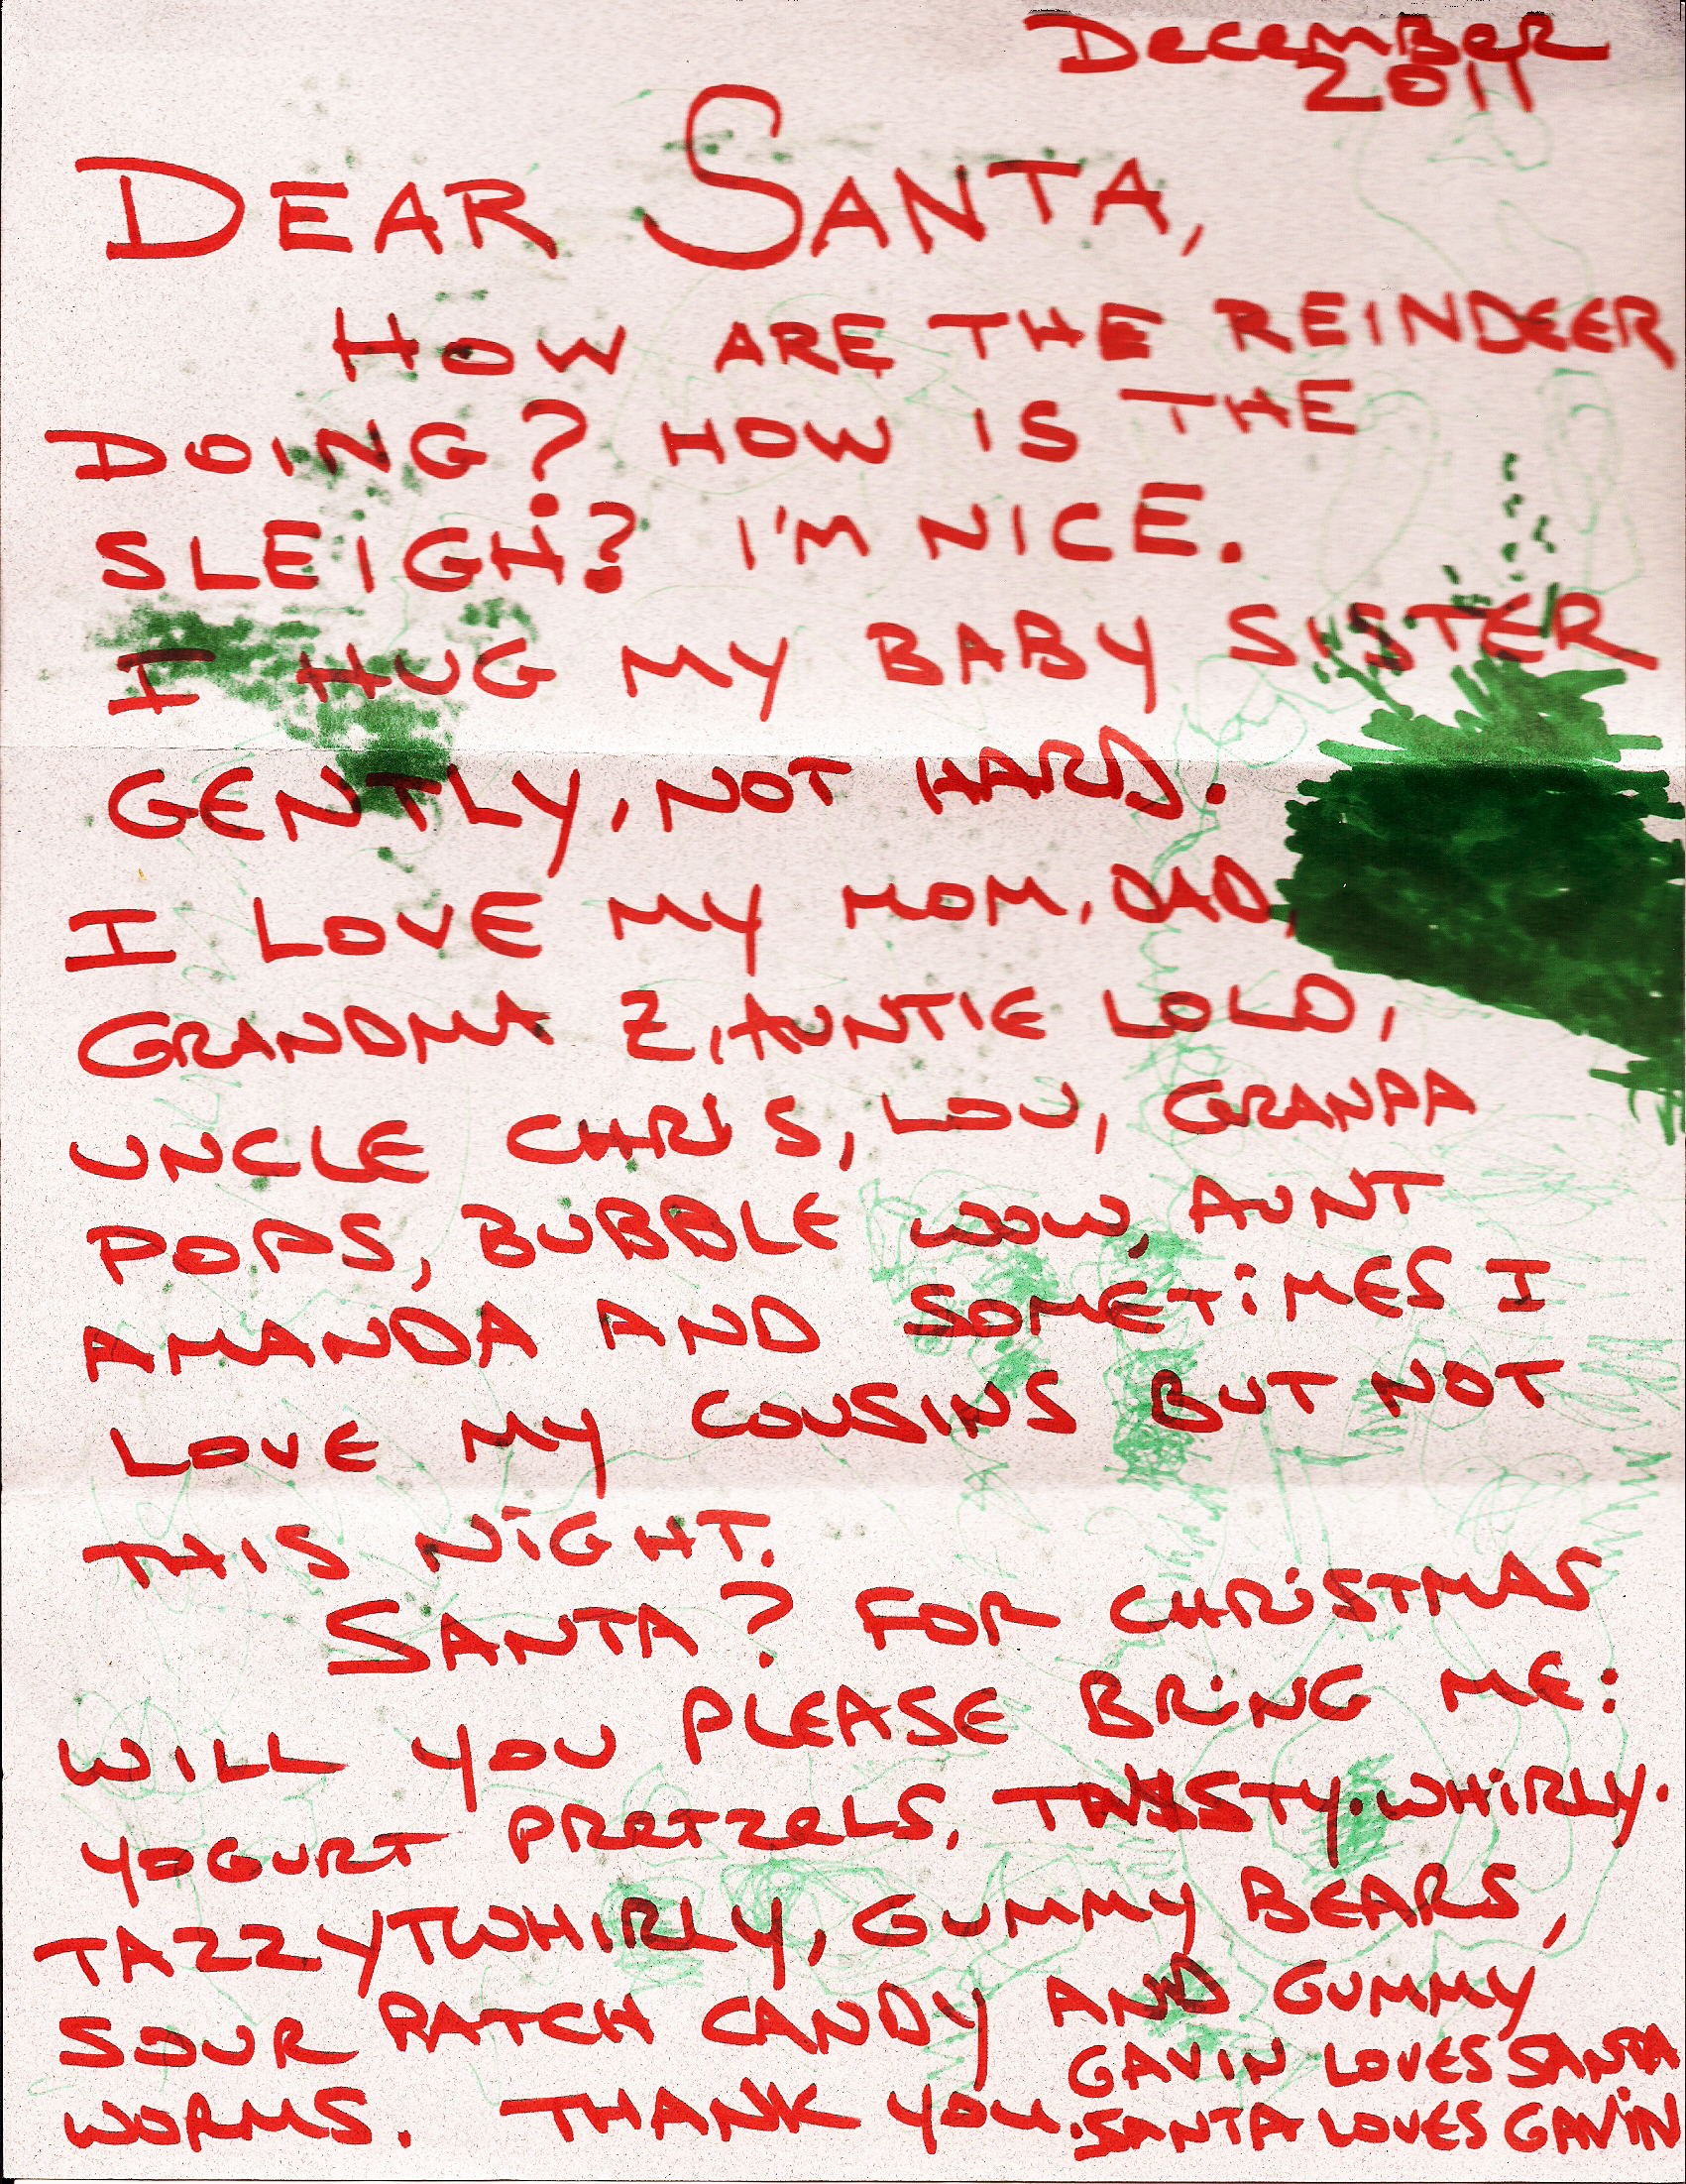 December
2011
DEAR SANTA,
HOW ARE THE REINDEER
DOING? HOW IS THE
SLEIGH? I'M NICE.
I HUG MY BABY SISTER
GENTLY, NOT HARD.
I LOVE MY MOM, DAD,
GRANDMA Z, AUNTIE LOLO,
UNCLE CHRIS, LOU, GRANPA
POPS, BUBBLE WOW, AUNT
AMANDA AND SOMETIMES I
LOVE MY COUSINS BUT NOT
THIS NIGHT.
SANTA? FOR CHRISTMAS
WILL YOU PLEASE BRING ME:
YOGURT PRETZELS, TASTY.WHIRLY.
TAZZYTWHIRLY, GUMMY BEARS,
SOUR PATCH CANDY AND GUMMY
WORMS. THANK YOU.
GAVIN LOVES SANTA
SANTA LOVES GAVIN